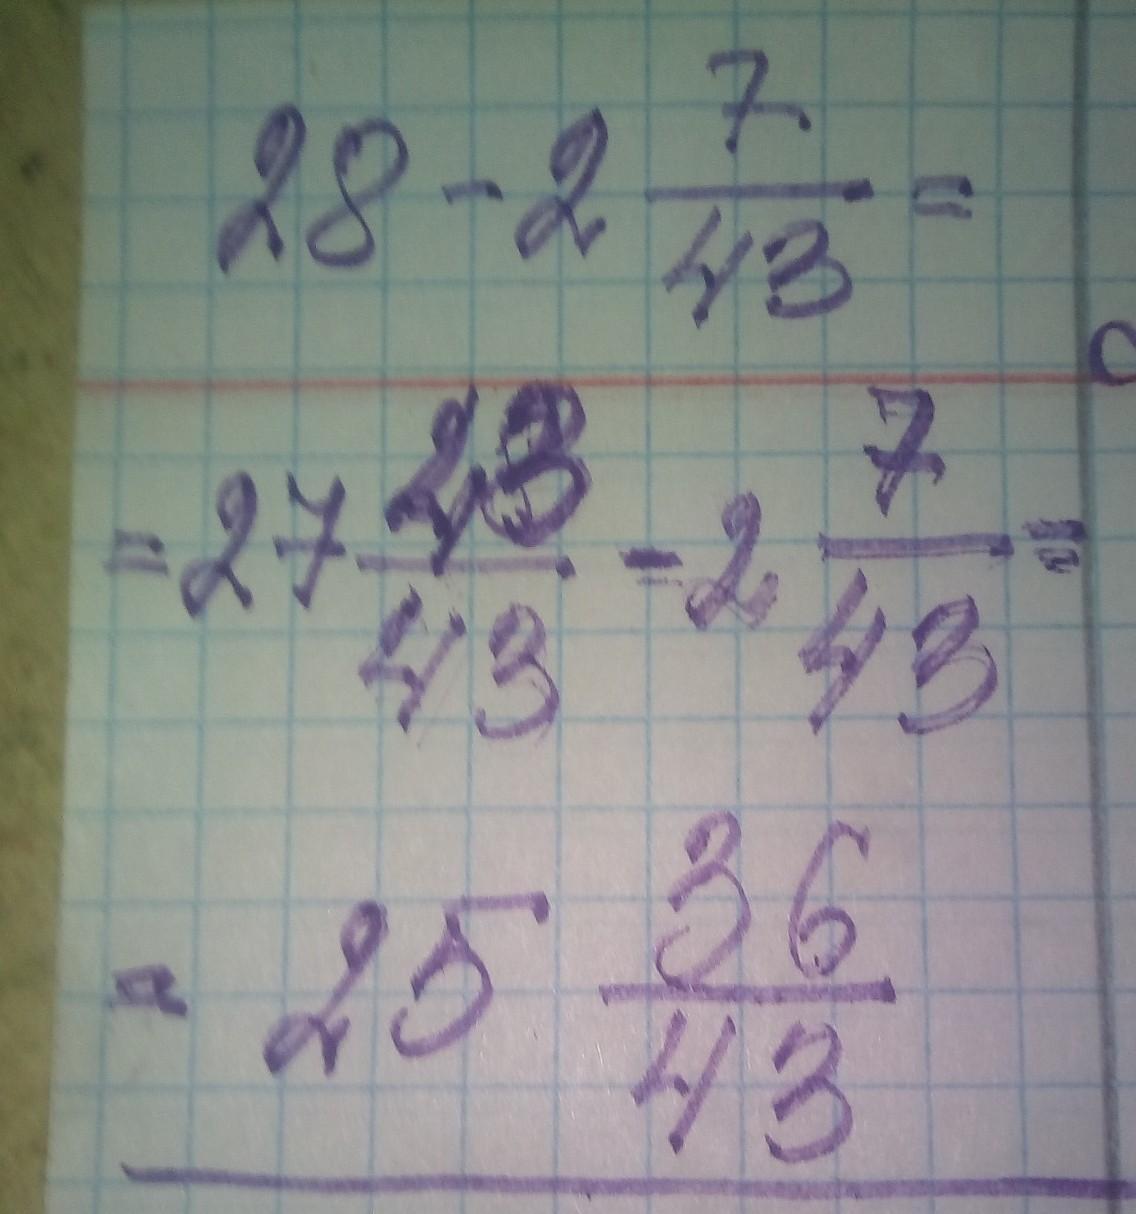 28 - 2 7/43 =
= 27 43/43 - 2 7/43 =
= 25 36/43